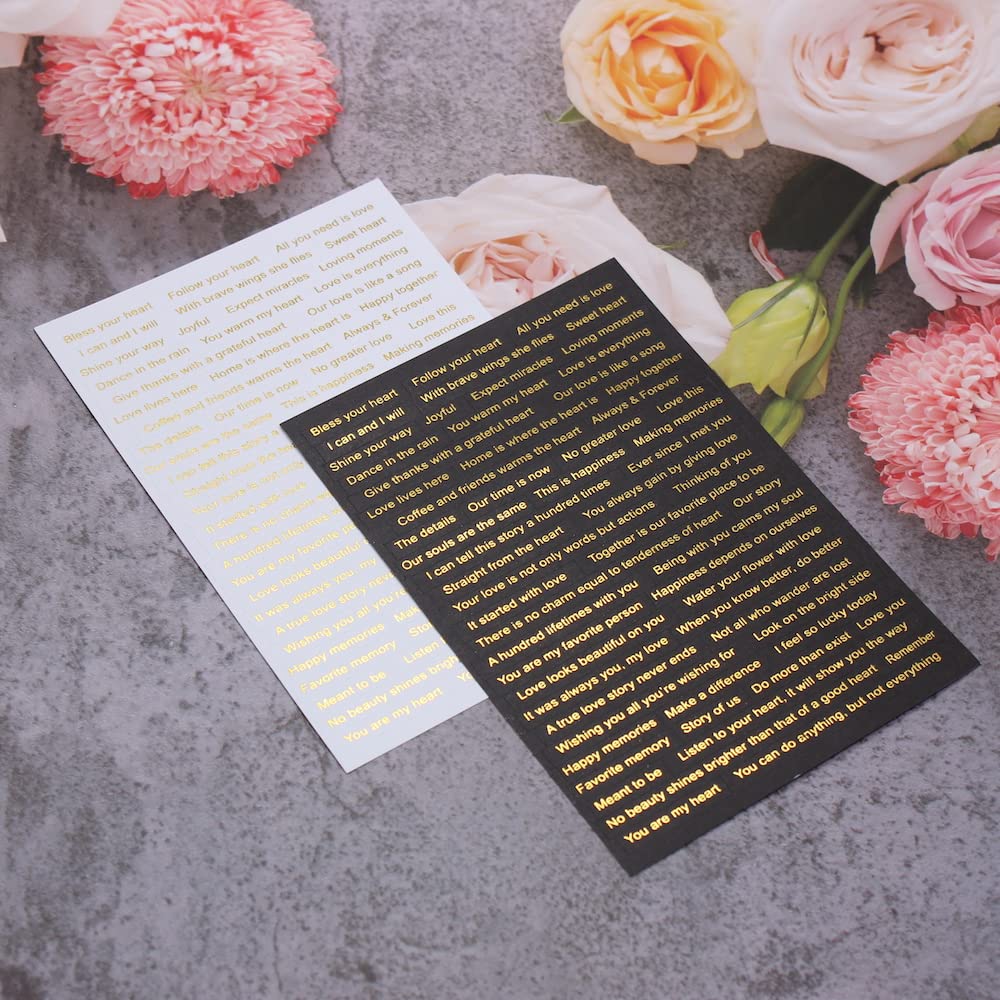 Bless your heart Follow your heart All you need is love
I can and I will With brave wings she flies Sweet heart
Shine your way Joyful Expect miracles Loving moments
Dance in the rain You warm my heart Love is everything
Give thanks with a grateful heart Our love is like a song
Love lives here Home is where the heart is Happy together
Coffee and friends warms the heart Always & Forever
The details Our time is now No greater love Love this
Our souls are the same This is happiness Making memories
I can tell this story a
Straight from the
Your love is not only
It started with love
There is no charm
A hundred lifetimes
You are my favorite
Love looks beautiful
It was always you, my
A true love story never
Wishing you all you're
Happy memories
Favorite memory
Meant to be Listen
No beauty shines brigh
You are my heart
Bless your heart Follow your heart All you need is love
I can and I will With brave wings she flies Sweet heart
Shine your way Joyful Expect miracles Loving moments
Dance in the rain You warm my heart Love is everything
Give thanks with a grateful heart Our love is like a song
Love lives here Home is where the heart is Happy together
Coffee and friends warms the heart Always & Forever
The details Our time is now No greater love Love this
Our souls are the same This is happiness Making memories
I can tell this story a hundred times Ever since I met you
Straight from the heart You always gain by giving love
Your love is not only words but actions Thinking of you
It started with love Together is our favorite place to be
There is no charm equal to tenderness of heart Our story
A hundred lifetimes with you Being with you calms my soul
You are my favorite person Happiness depends on ourselves
Love looks beautiful on you Water your flower with love
It was always you, my love When you know better, do better
A true love story never ends Not all who wander are lost
Wishing you all you're wishing for Look on the bright side
Happy memories Make a difference I feel so lucky today
Favorite memory Story of us Do more than exist Love you
Meant to be Listen to your heart, it will show you the way
No beauty shines brighter than that of a good heart Remember
You are my heart You can do anything, but not everything